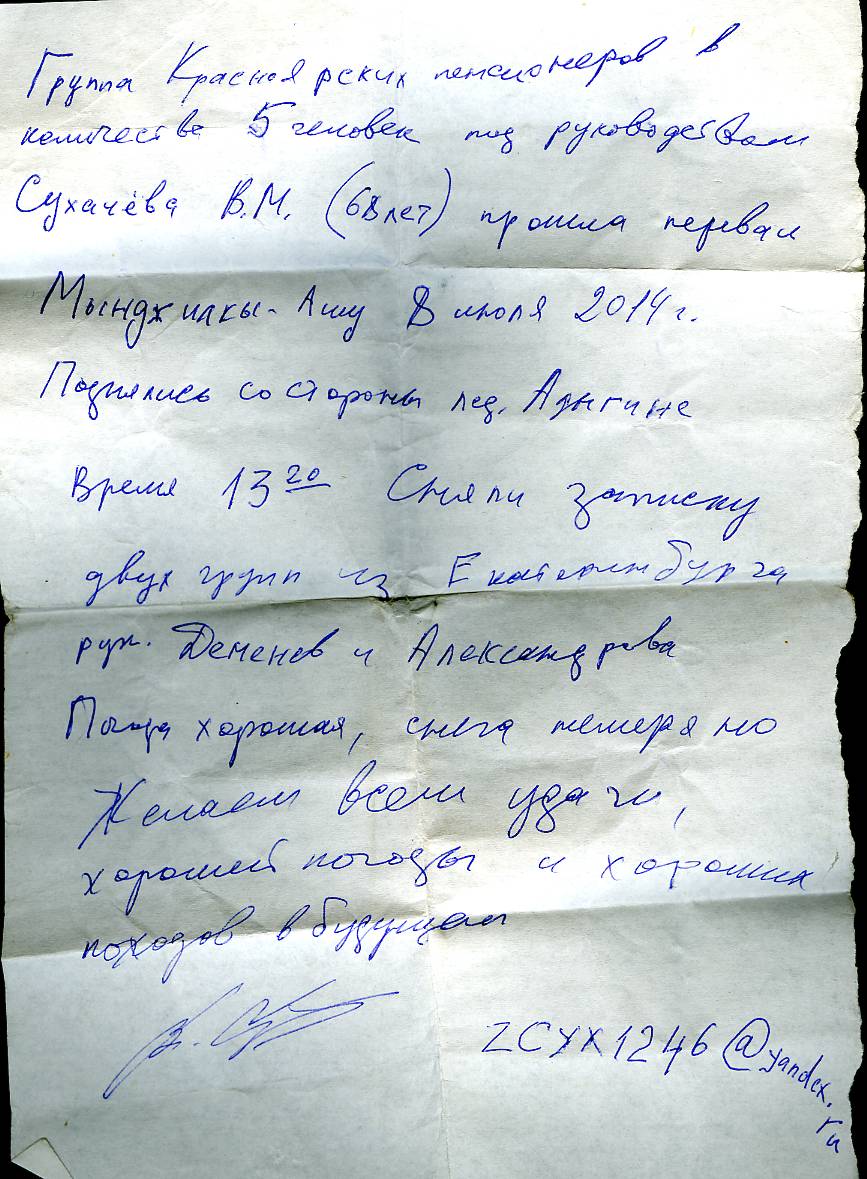 Группа Красноярских пенсионеров в
количестве 5 человек под руководством
Сухачёва В.М. (68 лет) прошла перевал
Мынджилкы-Ашу 8 июля 2014 г.
Поднялись со стороны лед. Адыгине
Время 13 20 Сняли записку
двух групп из Екатеринбурга
рук. Деменев и Александрова
Погода хорошая, снега немеряно
Желаем всем удачи,
хорошей погоды и хороших
походов в будущем
ZCYX1246@yandex.ru